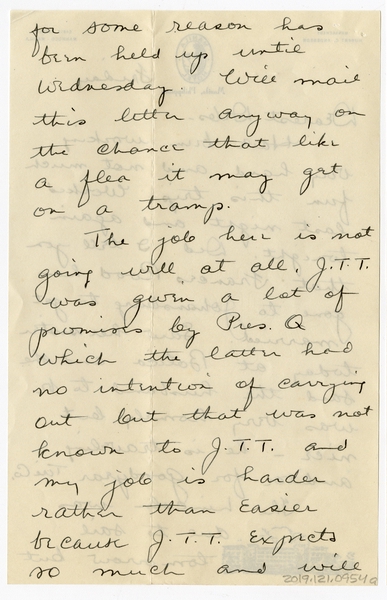 for some reason has
been held up until
Wednesday. Will mail
this letter anyway on
the chance that like
a flea it may get
on a tramp.
The job here is not
going well at all. J.T.T.
was given a lot of
promises by Pres. Q
which the latter had
no intention of carrying
out but that was not
known to J.T.T. and
my job is harder
rather than Easier
because J.T.T. Expects
so much and will
2019.121.0954a